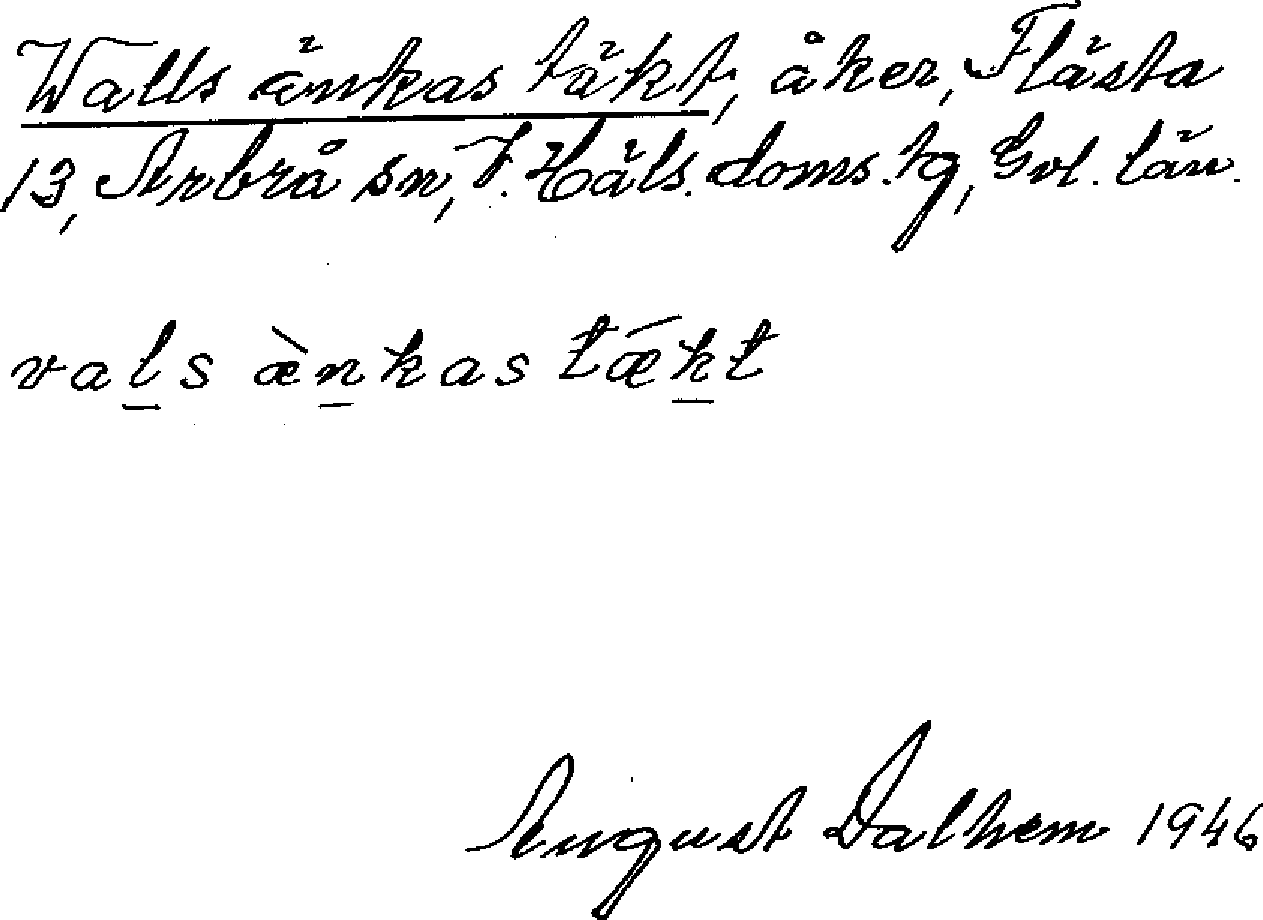 Walls änkas täkt, åker, Flästa
13, Arbrå sn, V. Häls. doms. tg, Gvl. län.
va̲l̲s æ̀n̲kas tǽk̲t
August Dalhem 1946